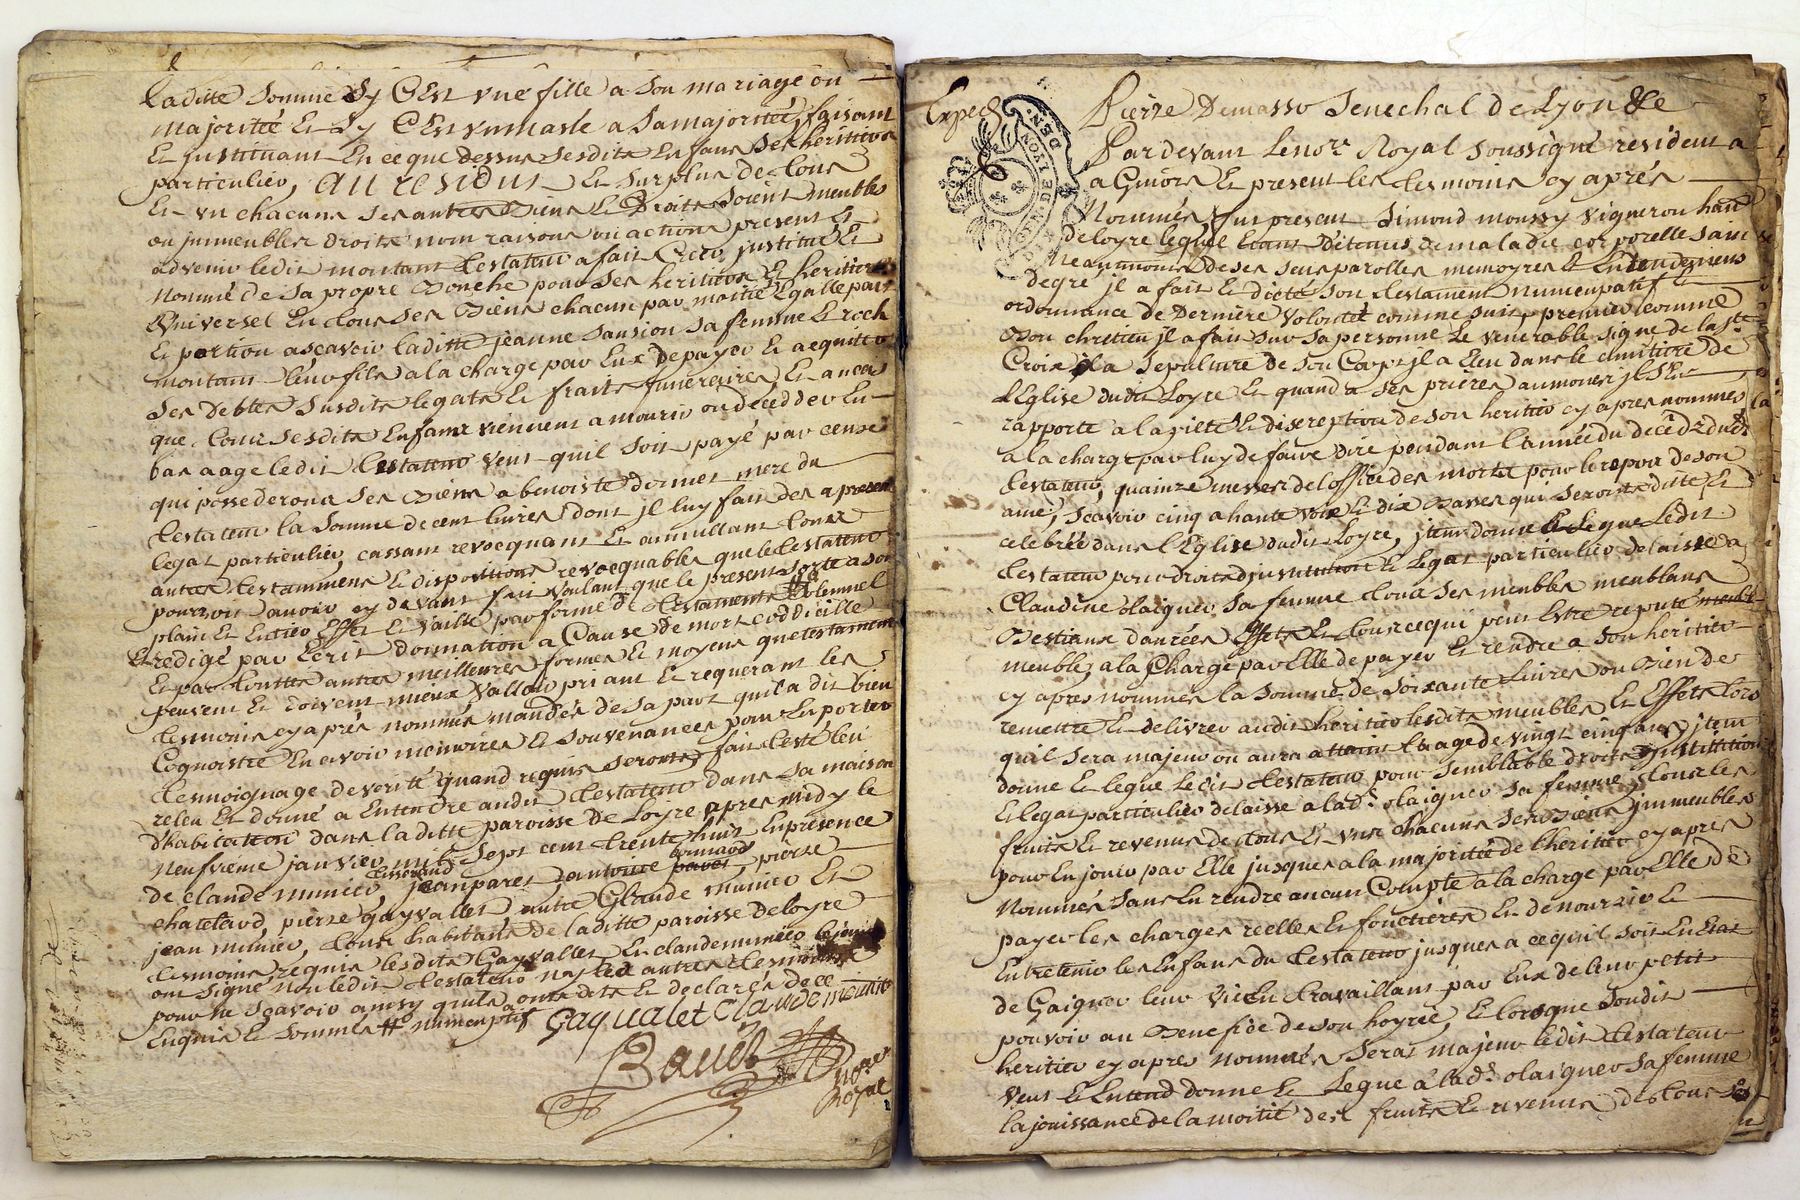 laditte somme sy C'est une fille a son mariage ou
majoritté Et sy C'est un masle a sa majoritté, faisant
Et justituant En ce que dessus sesdits Enfans ses heritiers
particulier, au residus Et surplus de tous
Et un chacuns ses autres Biens Et Droits soient meubles
ou jmmeubles droits nom raisons ou actions present Et
advenir ledit montant testateur a fait Créé, justitué Et
Nommé de sa propre Bouche pour ses heritiers Et heritiere
Universel En tous ses Biens chacun par moitié Egalle part
Et portion ascavoir laditte jeanne sansion sa femme Et roch
montant leur fils a la charge par Eux de payer Et acquitter
ses Debtes susdits legats Et fraits funeraires, Et en cas
que tous sesdits Enfans viennent a mourir ou decedder En
bas aage ledit testateur veut qu'il soit payé par ceuse
qui possederons ses Biens a benoiste dormet mere du
testateur la somme de cent livres dont jl luy fait des apresent
legat particulier, cassant revocquant Et annullant tous
autres testammens Et dispositions revocquables que le testateur
pourroit auoir cy devant fait voulant que le present sorte a son
plain Et Entier Effet Et vaille par forme de testament solemnel
Et redigé par Ecrit donnation a Cause de mort coddicille
Et par touttes autres meilleures formes Et moyens que testament
peuvent Et doivent mieux valloir priant Et requerant les
tesmoins cy aprés nommés mandés de sa part quil a dit bien
Cognoistre En avoir memoires Et souvenances pour En porter
tesmoignage de verité quand requis seronts, fait testé leu
releu Et donné a Entendre audit testateur dans sa maison
d'habitation dans laditte paroisse de Loire apres midy le
Neufvieme janvier mil sept cent trente huit En presence
de claude munier jean paret antoine pierre
chatelard, pierre gayvallet, autre Claude munier Et
jean munier, tous habitans de laditte paroisse de loyre
tesmoins requis lesdits Gayvallet Et claude munier le jeune
ont signé non ledit testateur ny les autres tesmoins
pour ne scavoir ainsy quils onts dits Et declarés de ce
Enquis Et sommés # numcuptif
Gaqualet Claude meunier
Bauet
Nore
Royal
Exped
Pierre Demasso Senechal de Lyon &c
Pardevant le nore Royal soussigné resident a
a Givors Et present les tesmoins cy aprés
Nommés fut present Simond moussy vigneron hant
de loyre lequel Etant détenus de maladie corporelle sain
Neantmoins de ses sens parolles memoyres Et Entendemens
de gre jl a fait Et dicté son testament numcupatif Et
ordonnance de Derniere volonté comme suit, premier comme
Bon chrétien jl a fait sur sa personne Le venérable signe de la ste
Croix jl a sepulture de son Corps jl a Eleu dans le cimitiere de
L'Eglise dudit Loyre Et quand a ses priéres aumones jl s'Est
rapporté a la pieté Et discreption de son heritier cy apres nommés
a la charge par luy de faire dire pendant l'année du decéd dudt
testateur, quainze messes de l'office des morts pour le repos de son
ame, scavoir cinq a haute voix Et dix Basses qui serons dittes Et
celebrées dans l'Eglise dudit Loyre, jtem donne Et legue Ledit
testateur pour droits d'jnstitution Et Legat particulier delaisse a
Claudine olaignier sa femme tous ses meubles meublans
Bestiaux danrées Effets Et tous ce qui peut Estre reputé meuble
meubles, a la Charge par Elle de payer Et rendre a son heritier
cy apres nommés la somme de soixante Livres ou Bien de
remettre Et delivrer audit heritier lesdits meubles Et Effets lors
quil sera majeur ou aura attaint l'aage de vingt cinq ans, jtem
donne Et legue Ledit testateur pour semblable droits d'jnstitution
Et legat particulier delaisse a ladte olaignier sa femme, tous les
fruits Et revenus de tous Et un chacuns ses Biens jmmeubles
pour En jouir par Elle jusques a la majoritté de l'heritier cy apres
Nommés sans En rendre aucun Compte a la charge par Elle de
payer les charges reelles Et fonctieres Et de nourrir Et
Entretenir les Enfans du testateur jusques a ce quil soit En Etat
de Gaigner leur vie En travaillant par Eux de leur petit
pouvoir au Benefice de son hoyrie, Et lorsque Soudit
heritier cy apres nommés sera majeur ledit testateur
veut Et Entend donne Et Legue a ladte olaignier sa femme
la jouissance de la moitié des fruits Et revenus de tous ses